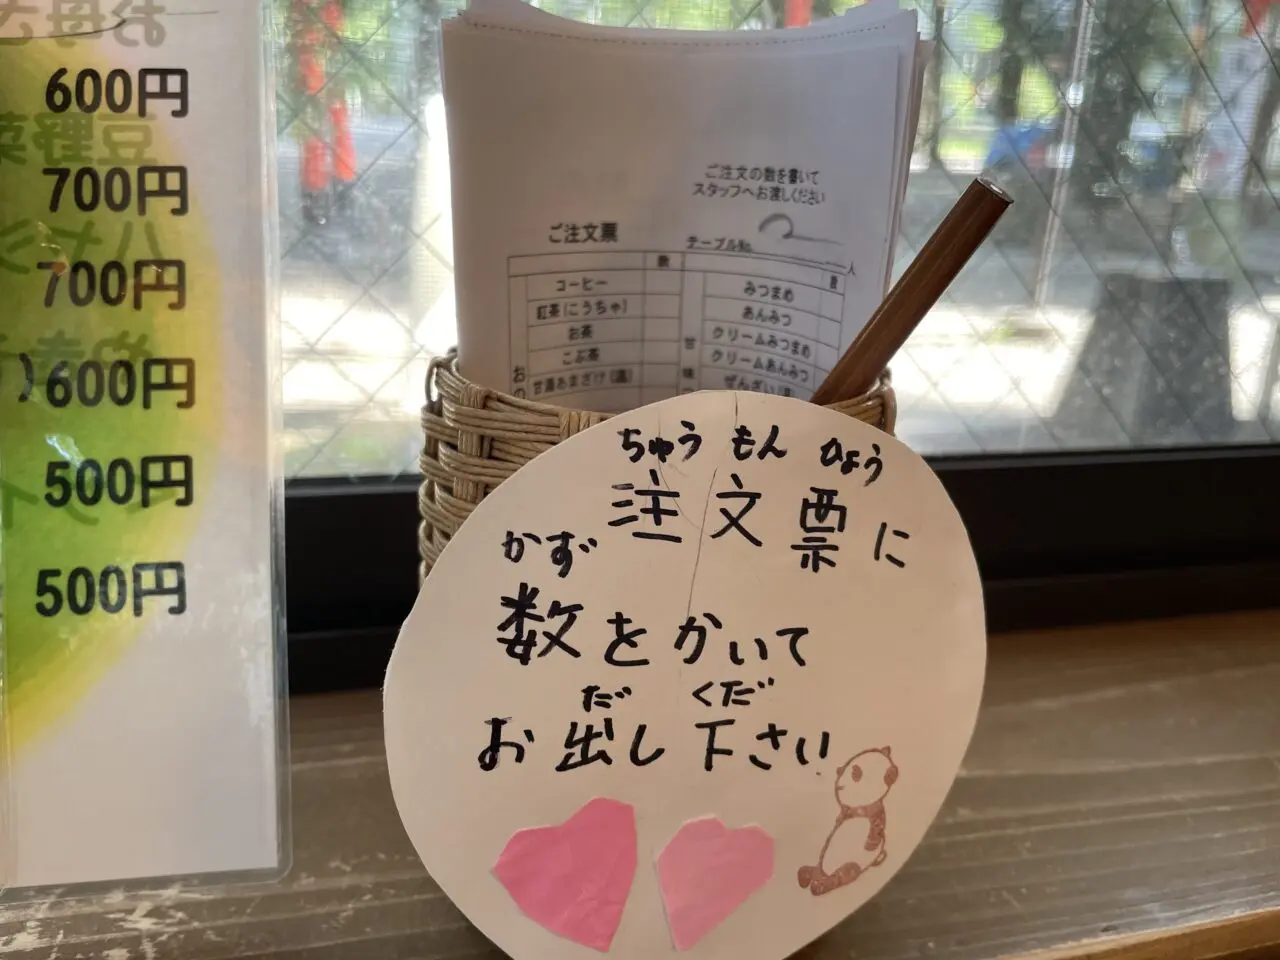 600円
700円
700円
600円
500円
500円
ご注文の数を書いて
スタッフへお渡しください
ご注文票
テーブルNo.
人
数
数
コーヒー
紅茶(こうちゃ)
お茶
こぶ茶
甘酒あまざけ(温)
おの
甘味
みつまめ
あんみつ
クリームみつまめ
クリームあんみつ
ぜんざい(温
ちゅう もん ひょう
注文票に
かず
数をかいて
だ くだ
お出し下さい